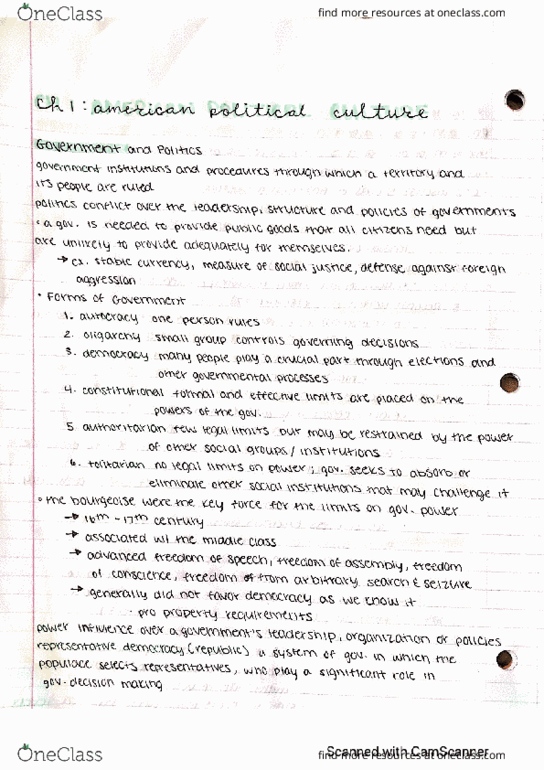 OneClass
find more resources at oneclass.com
Ch 1: american political culture
Government and Politics
government institutions and procedures through which a territory and
its people are ruled
politics conflict over the leadership, structure and policies of governments
a gov. is needed to provide public goods that all citizens need but
are unlikely to provide adequately for themselves.
→ ex. stable currency, measure of social justice, defense against foreign
aggression
• Forms of Government
1. autocracy one person rules
2. oligarchy small group controls governing decisions
3. democracy many people play a crucial part through elections and
other governmental processes
4. constitutional formal and effective limits are placed on the
powers of the gov.
5. authoritarian few legal limits but may be restrained by the power
of other social groups/institutions
6. totitarian no legal limits on power; gov. seeks to absorb or
eliminate other social institutions that may challenge it
• the bourgeoise were the key force for the limits on gov. power
→ 16th - 17th century
→ associated w/ the middle class
→ advanced freedom of speech, freedom of assembly, freedom
of conscience, freedom from arbitrary search & seizure
→ generally did not favor democracy as we know it
- pro property requirements
power influence over a government's leadership, organization or policies
representative democracy (republic) a system of gov. in which the
populace selects representatives, who play a significant role in
gov. decision making
OneClass
find more resources at oneclass.com
Scanned with CamScanner